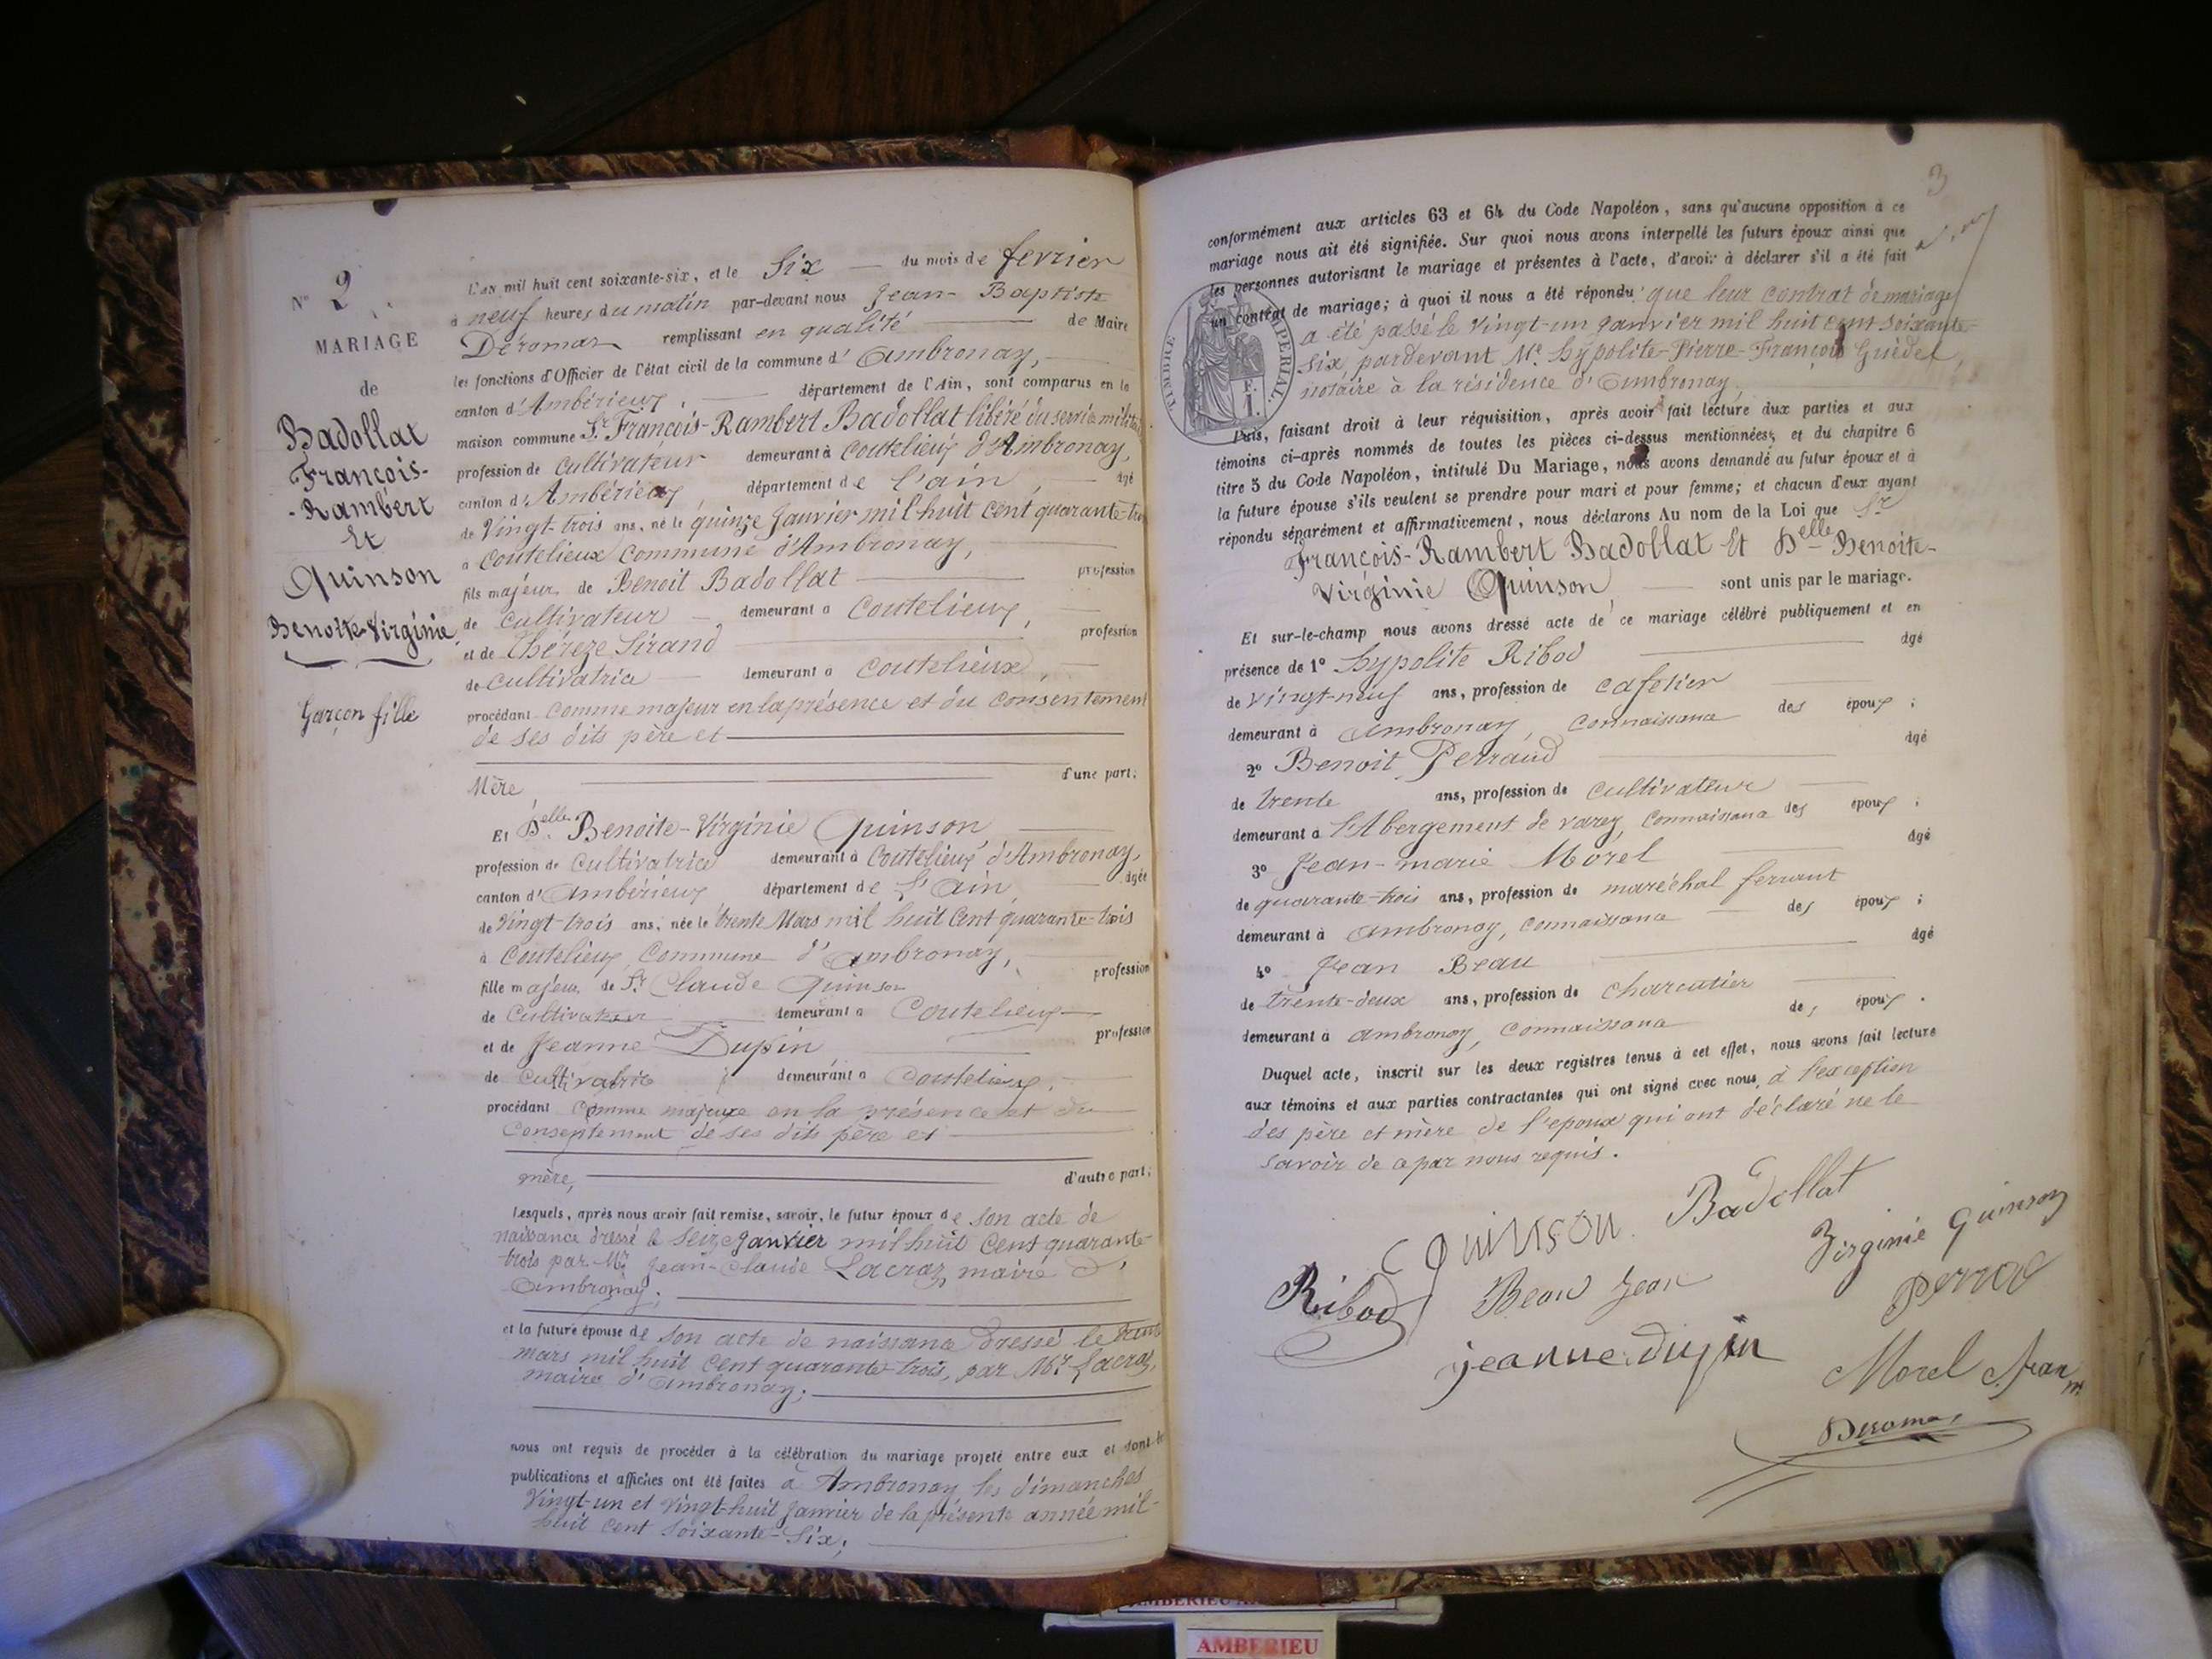 N° 2
MARIAGE
de
Badollat
François-
-Rambert
Et
Quinson
Benoite-Virginie
Garçon fille
L'an mil huit cent soixante-six, et le Six du mois de fevrier
à neuf heures du matin par-devant nous Jean-Baptiste
Deromas remplissant en qualité de Maire
les fonctions d'Officier de l'état civil de la commune d'Ambronay,
canton d'Ambérieux, département de l'Ain, sont comparus en la
maison commune Sr. François-Rambert Badollat libéré du service militaire
profession de cultivateur demeurant à Coutelieux d'Ambronay,
canton d'Ambérieux département de l'ain, âgé
de Vingt-trois ans, né le quinze Janvier mil huit cent quarante-trois
à Coutelieux Commune d'Ambronay,
fils majeur de Benoit Badollat profession
de cultivateur demeurant à Coutelieux,
et de Théreze Sirand profession
de cultivatrice demeurant à Coutelieux,
procédant comme majeur en la présence et du consentement
de ses dits père et
Mère d'une part;
Et Delle Benoite-Virginie Quinson
profession de cultivatrice demeurant à Coutelieux d'Ambronay,
canton d'ambérieux département de l'Ain, âgée
de Vingt trois ans, née le trente Mars mil huit Cent quarante-trois
à Coutelieux, Commune d'Ambronay,
fille majeure de Sr. Claude Quinson profession
de Cultivateur demeurant à Coutelieux
et de Jeanne Dupin profession
de cultivatrice demeurant à Coutelieux,
procédant comme majeure en la présence et du
Consentement de ses dits père et
mère, d'autre part;
Lesquels, après nous avoir fait remise, savoir, le futur époux de son acte de
naissance dressé le seize Janvier mil huit Cent quarante-
trois par Mr. Jean-Claude Lacroz, maire d'
Ambronay;
et la future épouse de son acte de naissance dressé le trente
mars mil huit Cent quarante-trois, par Mr. Lacroz,
maire d'Ambronay;
nous ont requis de procéder à la célébration du mariage projeté entre eux et dont les
publications et affiches ont été faites à Ambronay les dimanches
Vingt-un et Vingt-huit Janvier de la présente année mil-
huit cent Soixante-Six;
3
conformément aux articles 63 et 64 du Code Napoléon, sans qu'aucune opposition à ce
mariage nous ait été signifiée. Sur quoi nous avons interpellé les futurs époux ainsi que
les personnes autorisant le mariage et présentes à l'acte, d'avoir à déclarer s'il a été fait
un contrat de mariage; à quoi il nous a été répondu que leur contrat de mariage
a été passé le Vingt-un Janvier mil huit cent soixante-
six, pardevant Me. hypolite-Pierre-François Guédel,
notaire à la résidence d'Ambronay.
TIMBRE IMPERIAL
F.
1.
Puis, faisant droit à leur réquisition, après avoir fait lecture aux parties et aux
témoins ci-après nommés de toutes les pièces ci-dessus mentionnées, et du chapitre 6
titre 5 du Code Napoléon, intitulé Du Mariage, nous avons demandé au futur époux et à
la future épouse s'ils veulent se prendre pour mari et pour femme; et chacun d'eux ayant
répondu séparément et affirmativement, nous déclarons Au nom de la Loi que Sr
François-Rambert Badollat Et Delle Benoite-
Virginie Quinson sont unis par le mariage.
Et sur-le-champ nous avons dressé acte de ce mariage célébré publiquement et en
présence de 1° hypolite Ribod âgé
de Vingt-neuf ans, profession de cafetier
demeurant à Ambronay, connaissance des époux;
2° Benoit Perraud âgé
de trente ans, profession de cultivateur
demeurant à l'Abergement de varey, connaissance des époux;
3° Jean-marie Morel âgé
de quarante-trois ans, profession de maréchal ferrant
demeurant à Ambronay, connaissance des époux;
4° Jean Beau âgé
de trente-deux ans, profession de charcutier
demeurant à ambronay, connaissance des époux.
Duquel acte, inscrit sur les deux registres tenus à cet effet, nous avons fait lecture
aux témoins et aux parties contractantes qui ont signé avec nous, à l'exception
des père et mère de l'epoux qui ont déclaré ne le
savoir de ce par nous requis.
Quinson Badollat
Virginie Quinson
Ribod Beau Jean
jeanne dupin
Morel Jean m
Deromas
AMBERIEU